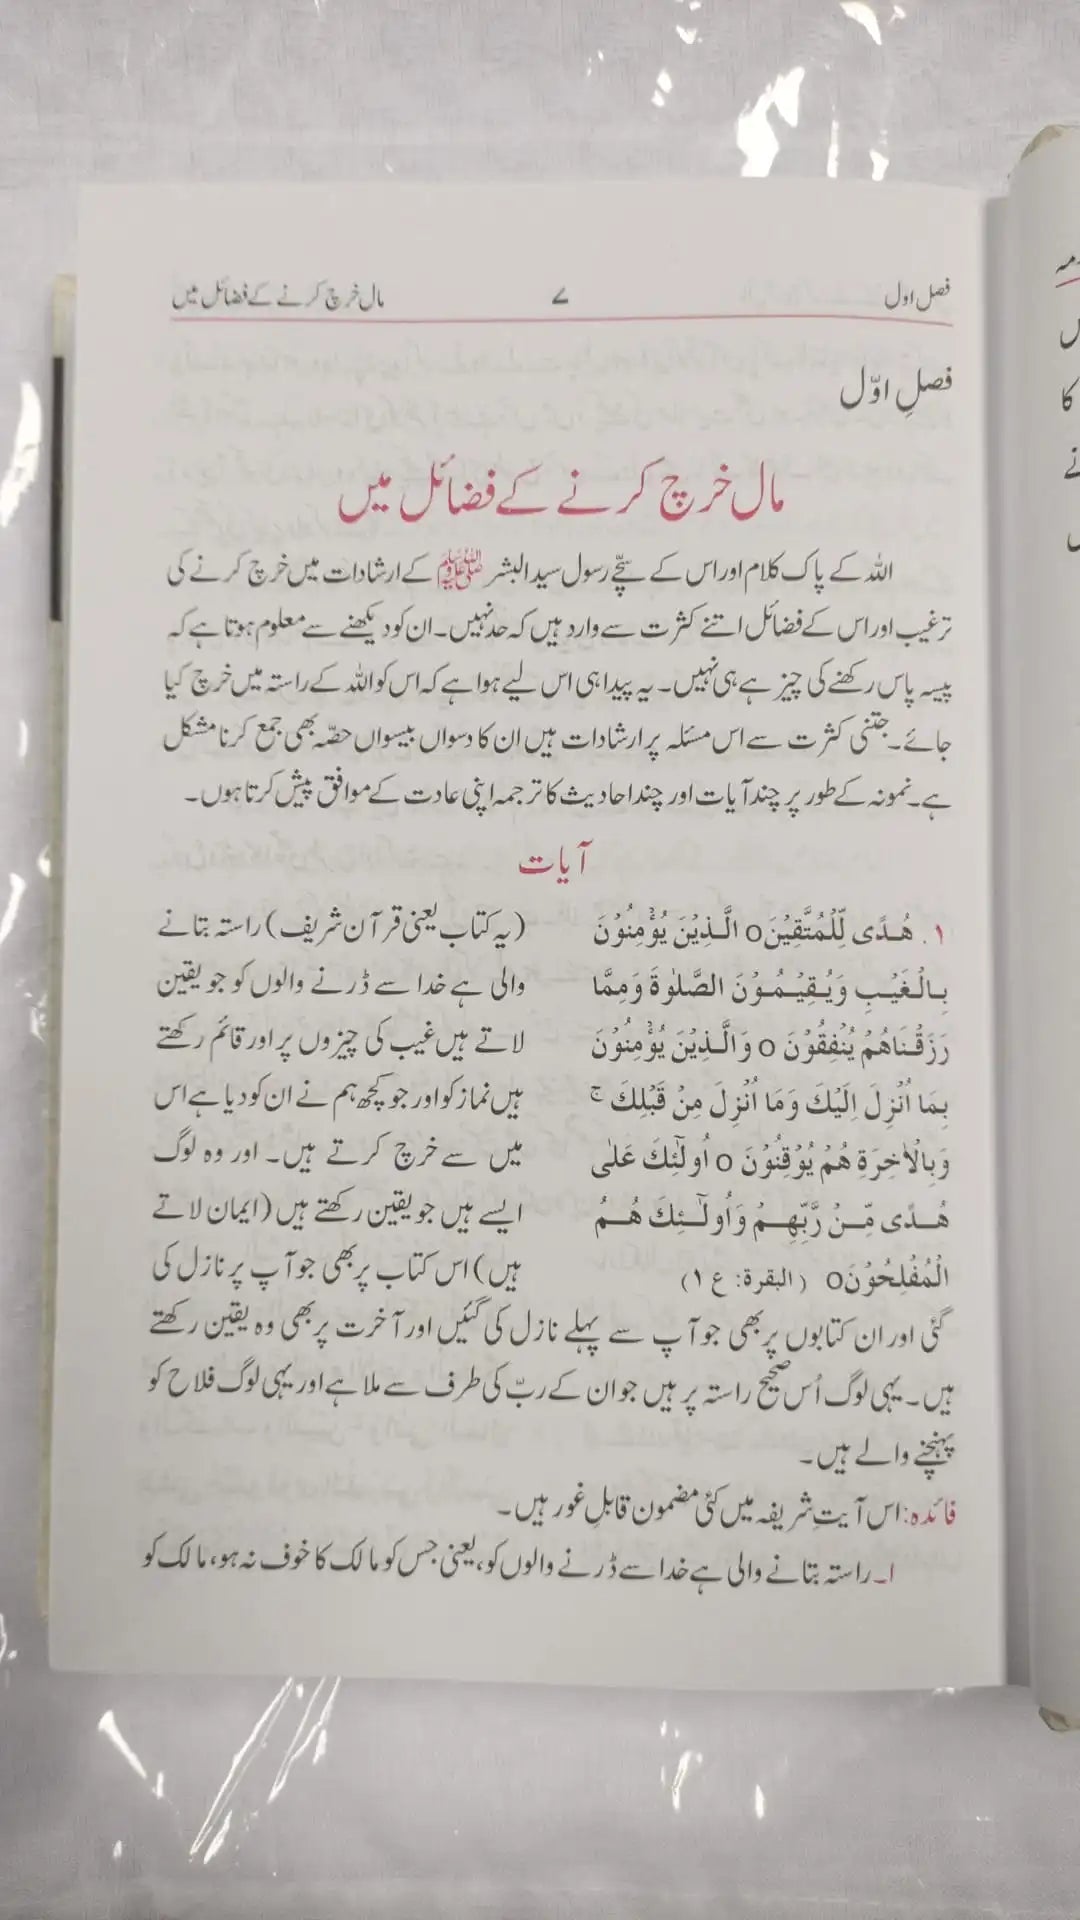 فصل اول ۷ مال خرچ کرنے کے فضائل میں
فصلِ اوّل
مال خرچ کرنے کے فضائل میں
اللہ کے پاک کلام اور اس کے سچّے رسول سید البشر ﷺ کے ارشادات میں خرچ کرنے کی
ترغیب اور اس کے فضائل اتنے کثرت سے وارد ہیں کہ حد نہیں۔ ان کو دیکھنے سے معلوم ہوتا ہے کہ
پیسہ پاس رکھنے کی چیز ہے ہی نہیں۔ یہ پیدا ہی اس لیے ہوا ہے کہ اس کو اللہ کے راستہ میں خرچ کیا
جائے۔ جتنی کثرت سے اس مسئلہ پر ارشادات ہیں ان کا دسواں بیسواں حصّہ بھی جمع کرنا مشکل
ہے۔ نمونہ کے طور پر چند آیات اور چند احادیث کا ترجمہ اپنی عادت کے موافق پیش کرتا ہوں۔
آیات
۱. هُدًى لِّلْمُتَّقِيْنَ o الَّذِيْنَ يُؤْمِنُوْنَ
بِالْغَيْبِ وَيُقِيْمُوْنَ الصَّلٰوةَ وَمِمَّا
رَزَقْنَاهُمْ يُنْفِقُوْنَ o وَالَّذِيْنَ يُؤْمِنُوْنَ
بِمَا اُنْزِلَ اِلَيْكَ وَمَا اُنْزِلَ مِنْ قَبْلِكَ ج
وَبِالْاٰخِرَةِ هُمْ يُوْقِنُوْنَ o اُولٰٓئِكَ عَلٰى
هُدًى مِّنْ رَّبِّهِمْ وَاُولٰٓئِكَ هُمُ
الْمُفْلِحُوْنَ o (البقرة: ع ۱)
(یہ کتاب یعنی قرآن شریف) راستہ بتانے
والی ہے خدا سے ڈرنے والوں کو جو یقین
لاتے ہیں غیب کی چیزوں پر اور قائم رکھتے
ہیں نماز کو اور جو کچھ ہم نے ان کو دیا ہے اس
میں سے خرچ کرتے ہیں۔ اور وہ لوگ
ایسے ہیں جو یقین رکھتے ہیں (ایمان لاتے
ہیں) اس کتاب پر بھی جو آپ پر نازل کی
گئی اور ان کتابوں پر بھی جو آپ سے پہلے نازل کی گئیں اور آخرت پر بھی وہ یقین رکھتے
ہیں۔ یہی لوگ اُس صحیح راستہ پر ہیں جو ان کے ربّ کی طرف سے ملا ہے اور یہی لوگ فلاح کو
پہنچنے والے ہیں۔
فائدہ: اس آیتِ شریفہ میں کئی مضمون قابلِ غور ہیں۔
۱۔ راستہ بتانے والی ہے خدا سے ڈرنے والوں کو، یعنی جس کو مالک کا خوف نہ ہو، مالک کو